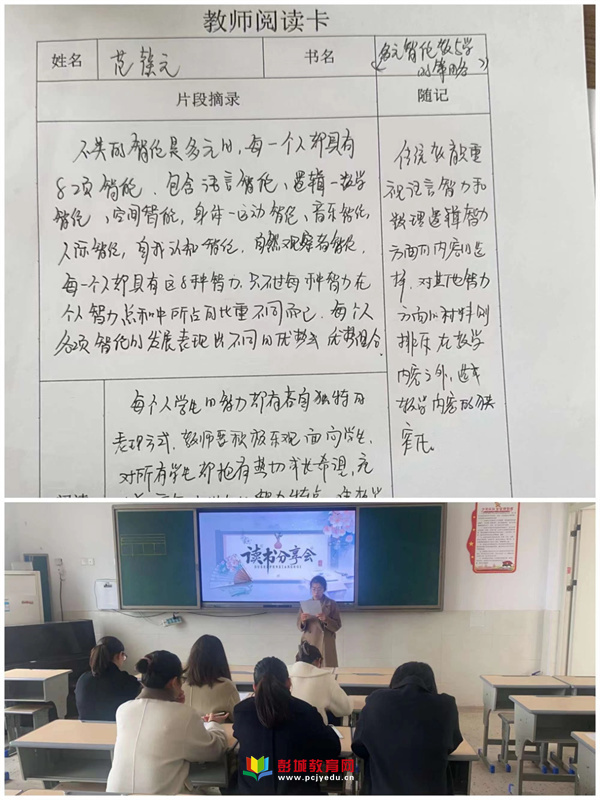 教师阅读卡
姓名 范 元 书名 《多元智能教与学的策略》
片段摘录 随记
人类的智能是多元的,每一个人都具有
8项智能,包含语言智能、逻辑一数学
智能、空间智能,身体一运动智能、音乐智能,
人际智能,自我认知智能,自然观察者智能,
每一个人都具有这8种智力,只不过每种智力在
个人智力总和中所占的比重不同而已。每个人
各项智能的发展表现出不同的优势或优势组合
传统教育重
视语言智力和
数理逻辑智力
方面的内容的选
择,对其他智力
方面的材料则
排斥在教学
内容之外,造成
教学内容的狭
窄化。
每个人学生的智力都有各自独特的
表现方式,教师要积极乐观面向学生,
对所有学生都抱有热切成长希望,充
读书分享会
彭城教育网
www.pcjyedu.cn